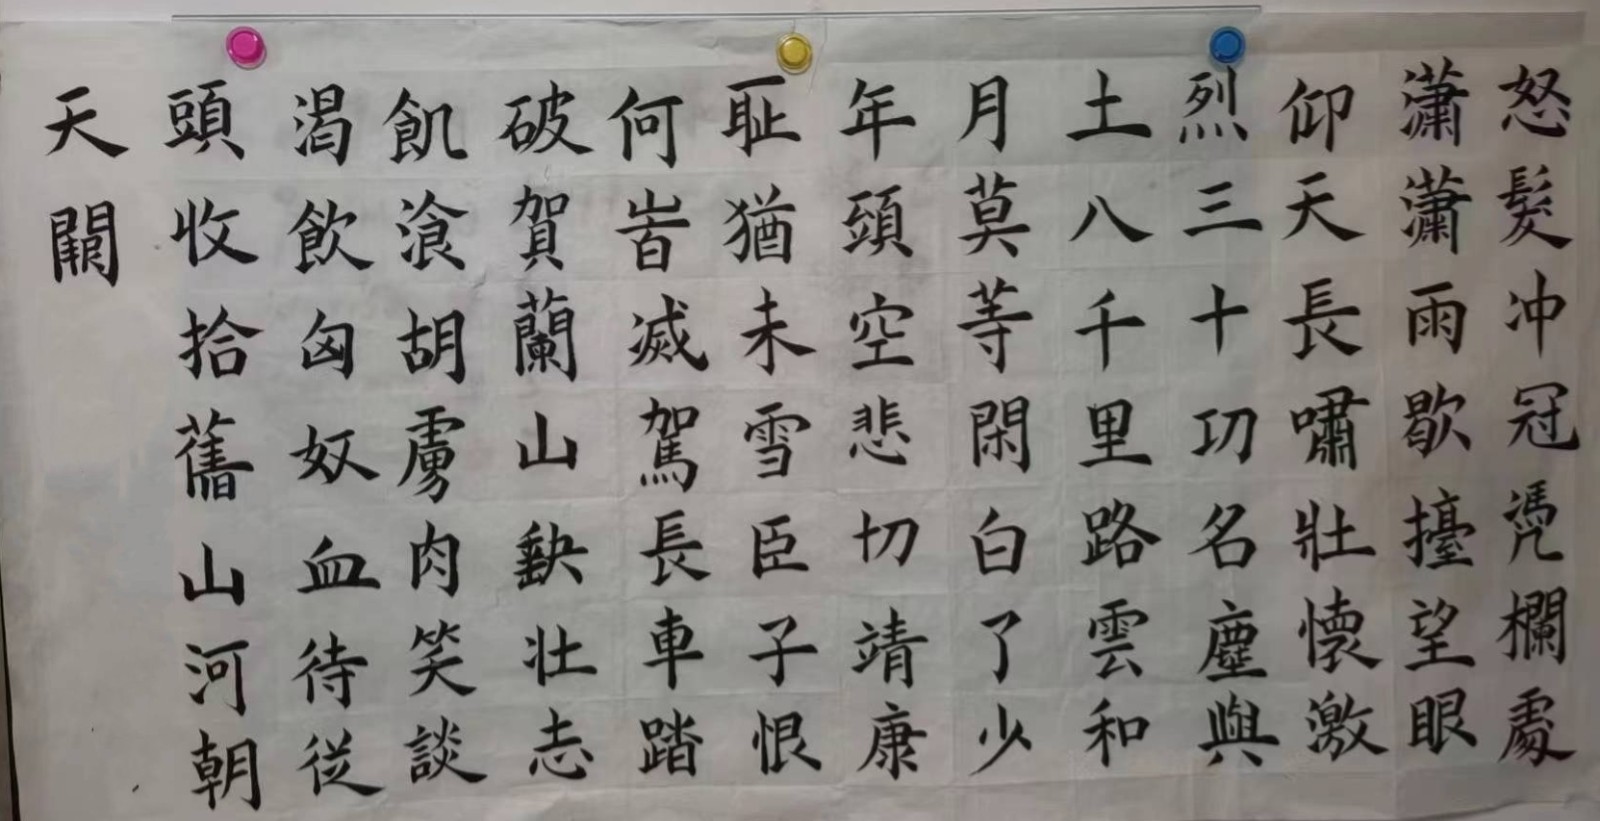 怒髮冲冠凭欄處
瀟瀟雨歇擡望眼
仰天長嘯壯懷激
烈三十功名塵與
土八千里路雲和
月莫等閑白了少
年頭空悲切靖康
耻猶未雪臣子恨
何旹滅駕長車踏
破賀蘭山缺壯志
飢飡胡虜肉笑談
渴飲匈奴血待從
頭收拾舊山河朝
天闕